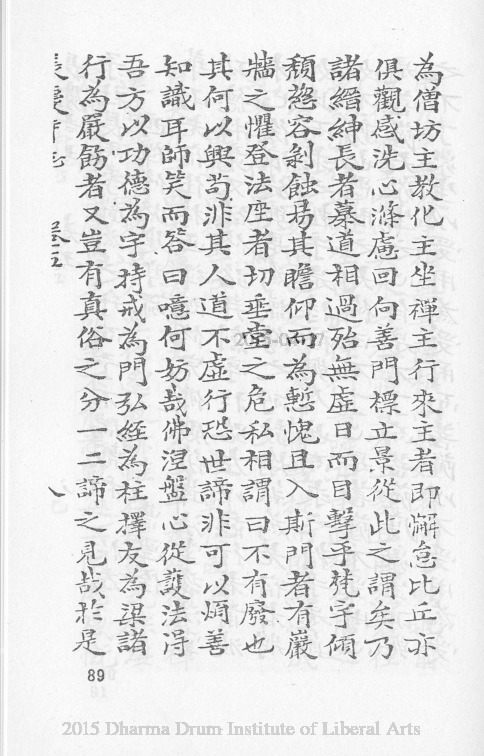 為僧坊主教化主坐禪主行來主者即懈怠比丘亦
俱觀感洗心滌慮回向善門標立景從此之謂矣乃
諸縉紳長者慕道相過殆無虛日而目擊乎梵宇傾
頹慈容剝蝕昜其瞻仰而為慙愧且入斯門者有巖
牆之懼登法座者切垂堂之危私相謂曰不有廢也
其何以興苟非其人道不虛行恐世諦非可以煩善
知識耳師笑而答曰噫何妨哉佛涅盤心從護法淂
吾方以功德為宇持戒為門弘經為柱擇友為梁諸
行為嚴飭者又豈有真俗之分一二諦之見哉於是
卷五
八
89
2015 Dharma Drum Institute of Liberal Arts